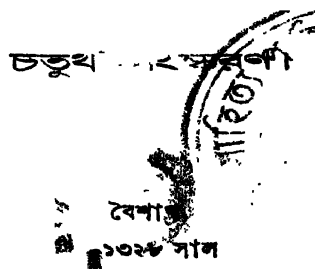 চতুর্থ সংস্করণ
বৈশাখ
১৩২৮ সাল